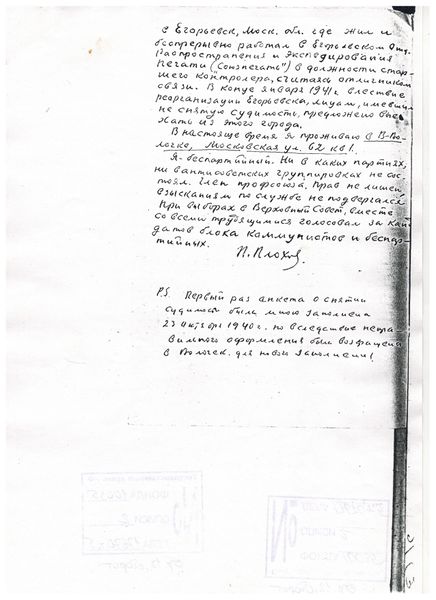 в Егорьевск, Моск. обл. где жил и
беспрерывно работал в Егорьевском отд.
Распространения и Экспедирования
Печати ("Союзпечать") в должности стар-
шего контролера, считаясь отличником
связи. В конце января 1941 г. вследствие
реорганизации Егорьевска, лицам, имевшим
не снятую судимость, предложено вые-
хать из этого города.
В настоящее время я проживаю в В-Во-
лочке, Московская ул. 62 кв 1.
Я-беспартийный. Ни в каких партиях,
ни в антисоветских группировках не сос-
тоял. Член профсоюза. Прав не лишен
взысканиям по службе не подвергался
При выборах в Верховный Совет, вместе
со всеми трудящимися голосовал за кан-
датов блока коммунистов и беспар-
тийных.
П. Плохов
P.S. Первый раз анкета о снятии
судимости была мною заполнена
27 1940 г. но вследствие непра
вильного оформления была возвращена
в Волочек для заполнения!